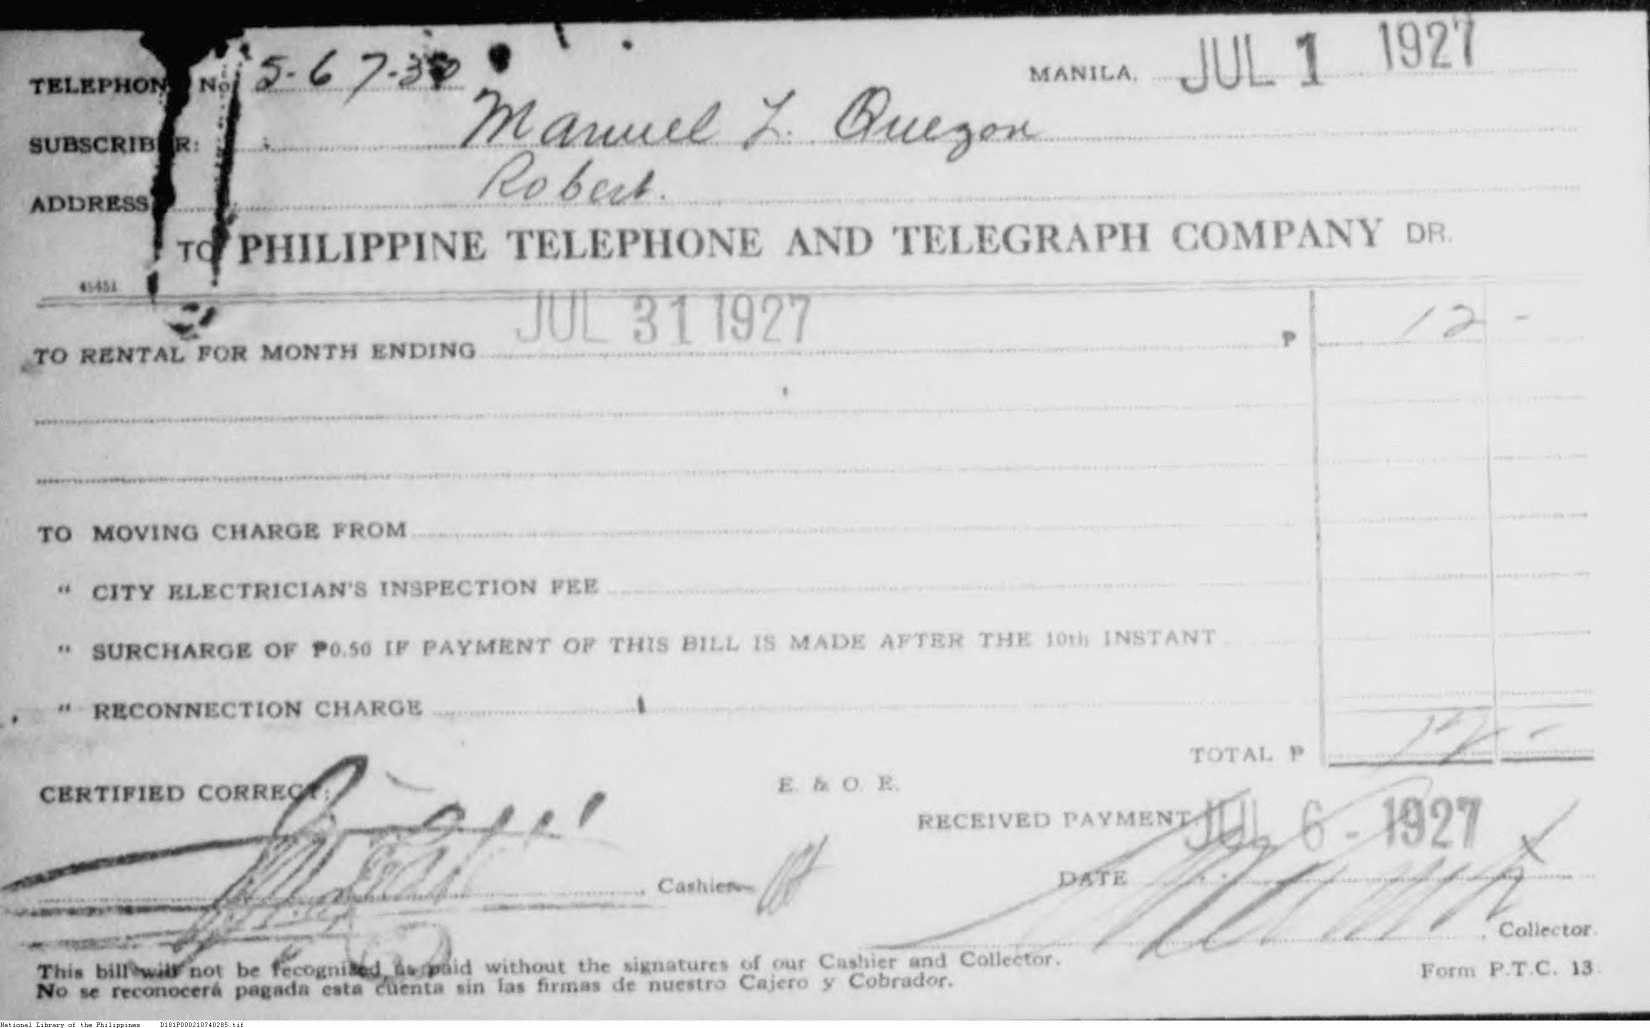 TELEPHONE No. 5-6 7-30 MANILA, JUL 1 1927
SUBSCRIBER: Manuel L. Quezon
ADDRESS Robert.
TO PHILIPPINE TELEPHONE AND TELEGRAPH COMPANY DR.
45451
TO RENTAL FOR MONTH ENDING JUL 31 1927 ₱ 12 -
TO MOVING CHARGE FROM
" CITY ELECTRICIAN'S INSPECTION FEE
" SURCHARGE OF ₱0.50 IF PAYMENT OF THIS BILL IS MADE AFTER THE 10th INSTANT
" RECONNECTION CHARGE
TOTAL ₱ 12 -
CERTIFIED CORRECT: E. & O. E.
RECEIVED PAYMENT JUL 6 - 1927
Cashier DATE
Collector.
This bill will not be recognized as paid without the signatures of our Cashier and Collector.
No se reconocerá pagada esta cuenta sin las firmas de nuestro Cajero y Cobrador.
Form P.T.C. 13.
National Library of the Philippines D181P000210740285.tif